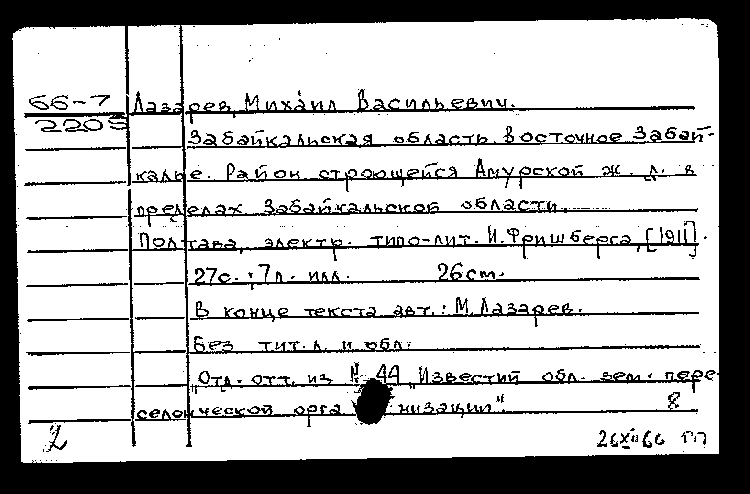 66-7 Лазарев, Михаил Васильевич.
2205
Забайкальская область. Восточное Забай-
калье. Район строющейся Амурской ж. д. в
пределах Забайкальской области.
Полтава, электр. типо-лит. И. Фришберга, [1911].
27с.; 7л. илл. 26см.
В конце текста авт.: М. Лазарев.
Без тит. л. и обл.
"Отд. отт. из № 44 "Известий обл. зем. пере-
селенческой организации".
8
2
26XII66 ПП